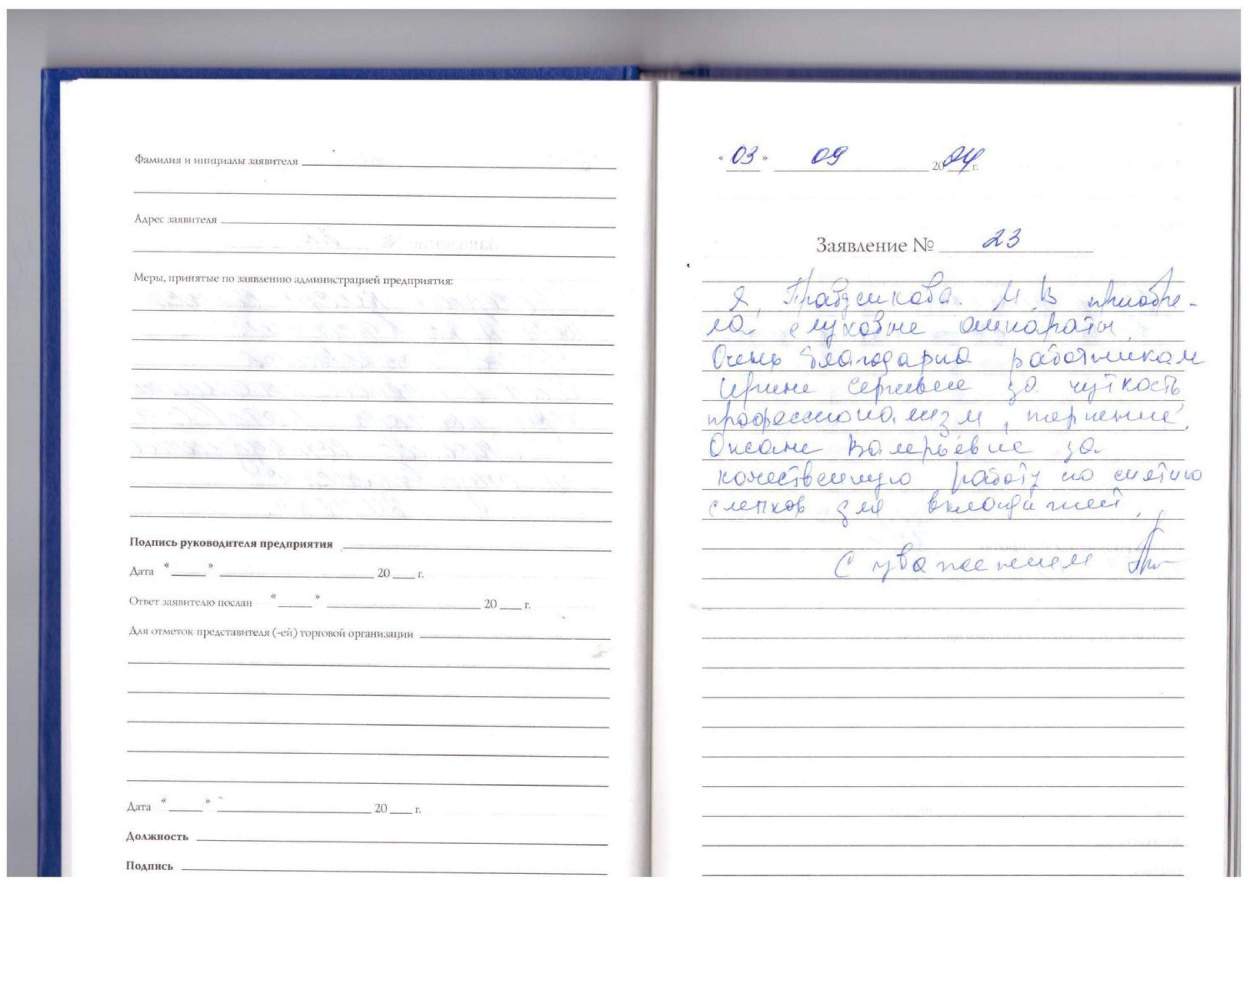 Фамилия и инициалы заявителя
Адрес заявителя
Меры, принятые по заявлению администрацией предприятия:
Подпись руководителя предприятия
Дата " " 20 г.
Ответ заявителю послан " " 20 г.
Для отметок представителя (-ей) торговой организации
Дата " " 20 г.
Должность
Подпись
"03" 09 2024 г.
Заявление № 23
Я, М. В. приобре-
ла слуховые аппараты.
Очень благодарна работникам
Ирине Сергеевне за чуткость,
профессионализм, терпение,
Оксане Валерьевне за
качественную работу по снятию
слепков для вкладышей.
С уважением